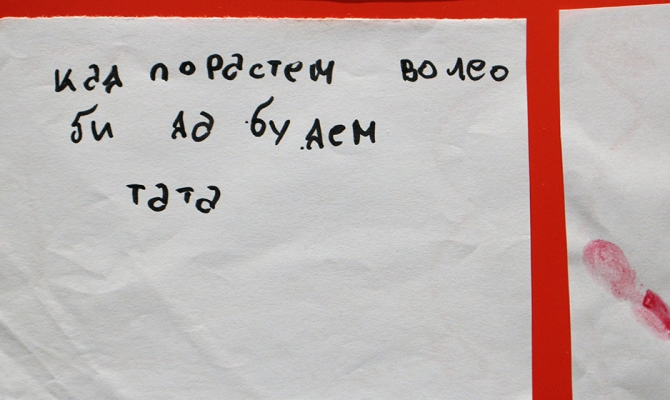 кад порастем волео
би да будем
тата